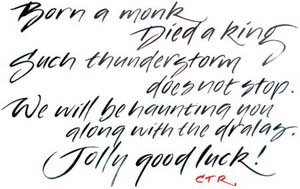 Born a monk
Died a king
Such thunderstorm
does not stop.
We will be haunting you
along with the dralas.
Jolly good luck!
CTR.